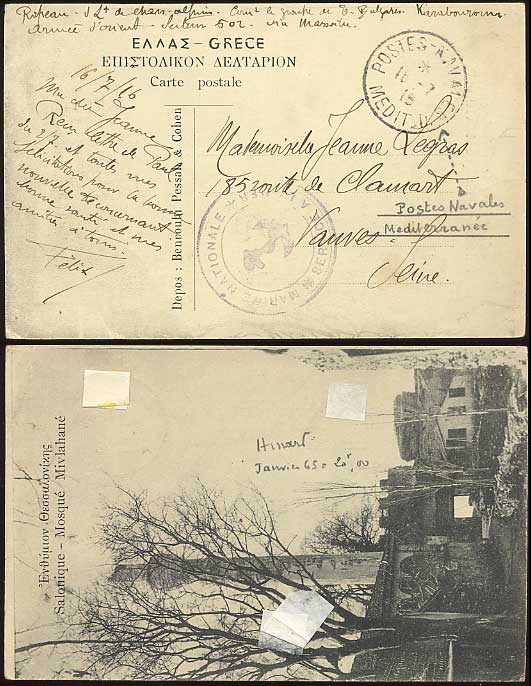 S Lt de chass-alpins. Comt le groupe de Bulgares. Karabouroun
Armée d'orient Secteur 502. via Marseille.
ΕΛΛΑΣ - GRECE
ΕΠΙΣΤΟΛΙΚΟΝ ΔΕΛΤΑΡΙΟΝ
Carte postale
16/7/16
Jeanne
Reçu lettre de
du 2/7 et toutes mes
félicitations pour la bonne
nouvelle concernant
bonne santé et mes
amitiés à tous.
Félix
Depos: Benroubi Pessah & Cohen
POSTES NAVALES
MEDIT.
Mademoiselle Jeanne Legras
185 route de Clamart
Vanves
Seine.
Postes Navales
Mediterranée
MARINE NATIONALE
SERVICE A LA MER
Ἐνθύμιον Θεσσαλονίκης
Salonique - Mosqué Mivlahané
Janvier 65 = 20,00